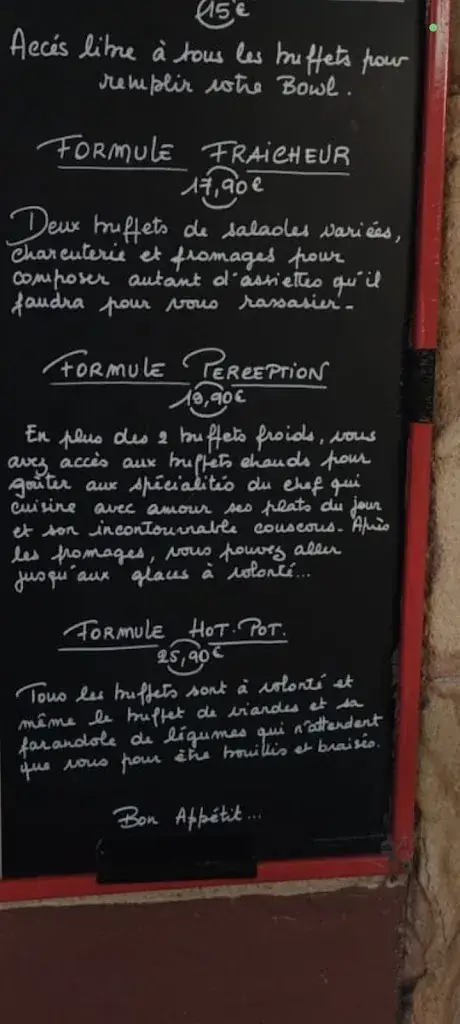 15€
Accés libre à tous les buffets pour
remplir votre Bowl.
FORMULE FRAICHEUR
17,90€
Deux buffets de salades variées,
charcuterie et fromages pour
composer autant d'assiettes qu'il
faudra pour vous rassasier-
FORMULE PERCEPTION
19,90€
En plus des 2 buffets froids, vous
avez accès aux buffets chauds pour
goûter aux spécialités du chef qui
cuisine avec amour ses plats du jour
et son incontournable couscous. Après
les fromages, vous pouvez aller
jusqu'aux glaces à volonté...
FORMULE HOT.POT.
25,90€
Tous les buffets sont à volonté et
même le buffet de viandes et sa
farandole de légumes qui n'attendent
que vous pour être bouillis et braisés.
Bon Appétit...